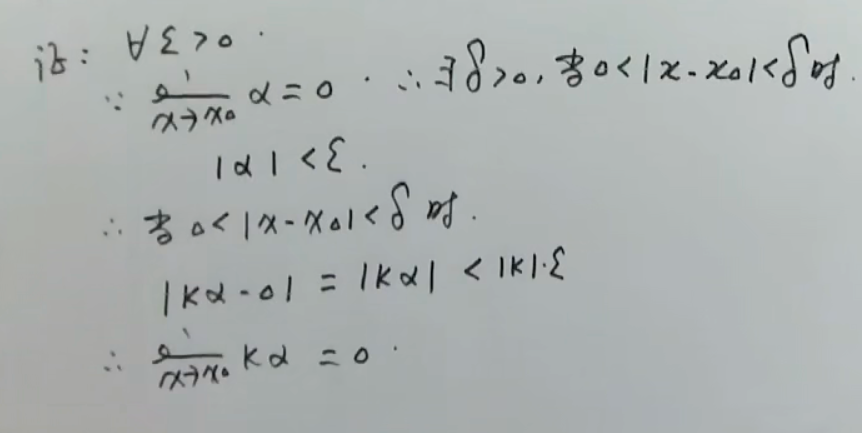 证: ∀ε>0.
∵ lim x→x₀ α=0. ∴∃δ>0, 当0<|x-x₀|<δ时.
|α|<ε.
∴ 当0<|x-x₀|<δ时.
|kα-0| = |kα| < |k|·ε
∴ lim x→x₀ kα = 0.